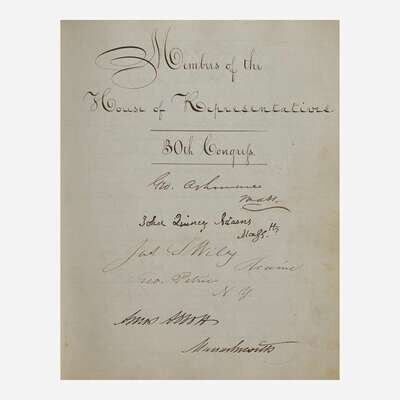 Members of the
House of Representatives
30th Congress.
Geo. Ashmun
Mass.
John Quincy Adams
Jas S Wiley
Maine
Geo. Petrie
N. Y.
Amos Abbott
Massachusetts